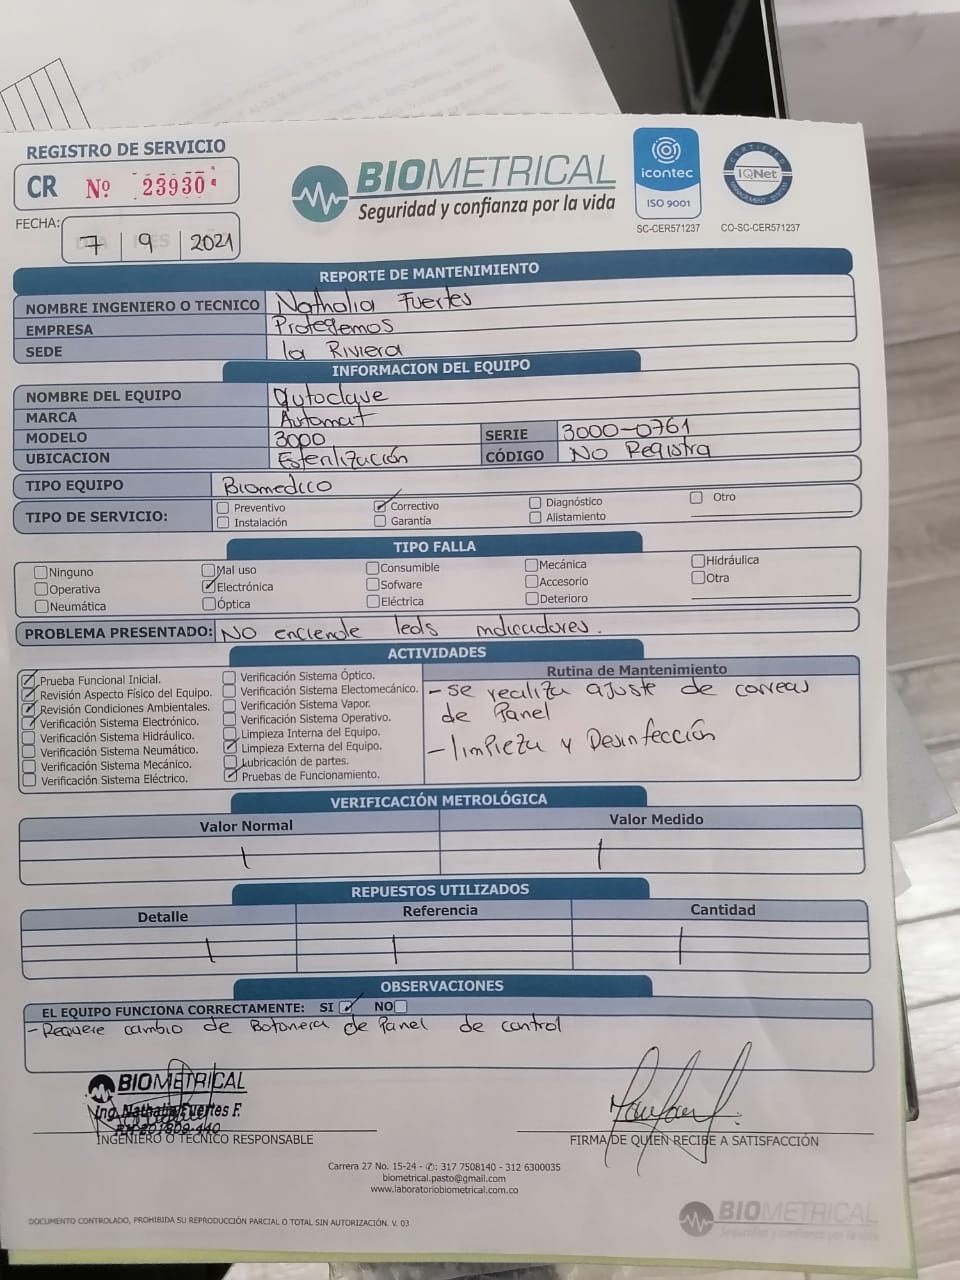 REGISTRO DE SERVICIO
CR Nº 23930
FECHA: 7 9 2021
BIOMETRICAL
Seguridad y confianza por la vida
icontec
ISO 9001
SC-CER571237
CERTIFIED
IQNet
MANAGEMENT SYSTEM
CO-SC-CER571237
REPORTE DE MANTENIMIENTO
NOMBRE INGENIERO O TECNICO Nathalia Fuertes
EMPRESA Protegemos
SEDE la Riviera
INFORMACION DEL EQUIPO
NOMBRE DEL EQUIPO Autoclave
MARCA Automat
MODELO 3000 SERIE 3000-0761
UBICACION Esterilización CÓDIGO No Registra
TIPO EQUIPO Biomedico
TIPO DE SERVICIO: Preventivo Correctivo Diagnóstico Otro
Instalación Garantía Alistamiento
TIPO FALLA
Ninguno Mal uso Consumible Mecánica Hidráulica
Operativa Electrónica Sofware Accesorio Otra
Neumática Óptica Eléctrica Deterioro
PROBLEMA PRESENTADO: No enciende leds indicadores.
ACTIVIDADES
Prueba Funcional Inicial.
Revisión Aspecto Físico del Equipo.
Revisión Condiciones Ambientales.
Verificación Sistema Electrónico.
Verificación Sistema Hidráulico.
Verificación Sistema Neumático.
Verificación Sistema Mecánico.
Verificación Sistema Eléctrico.
Verificación Sistema Óptico.
Verificación Sistema Electomecánico.
Verificación Sistema Vapor.
Verificación Sistema Operativo.
Limpieza Interna del Equipo.
Limpieza Externa del Equipo.
Lubricación de partes.
Pruebas de Funcionamiento.
Rutina de Mantenimiento
- se realiza ajuste de correas
de Panel
- limpieza y Desinfección
VERIFICACIÓN METROLÓGICA
Valor Normal Valor Medido
REPUESTOS UTILIZADOS
Detalle Referencia Cantidad
OBSERVACIONES
EL EQUIPO FUNCIONA CORRECTAMENTE: SI NO
- Requiere cambio de Botonera de Panel de control
BIOMETRICAL
Ing. Nathalia Fuertes F.
INGENIERO O TECNICO RESPONSABLE
FIRMA DE QUIEN RECIBE A SATISFACCIÓN
Carrera 27 No. 15-24 - ✆: 317 7508140 - 312 6300035
biometrical.pasto@gmail.com
www.laboratoriobiometrical.com.co
DOCUMENTO CONTROLADO, PROHIBIDA SU REPRODUCCIÓN PARCIAL O TOTAL SIN AUTORIZACIÓN. V. 03
BIOMETRICAL
Seguridad y confianza por la vida